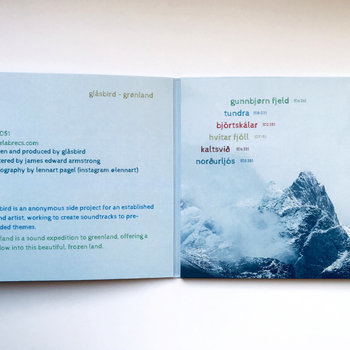 glåsbird - grønland
051
elabrecs.com
en and produced by glåsbird
tered by james edward armstrong
ography by lennart pagel (instagram @lennart)
bird is an anonymous side project for an established
nd artist, working to create soundtracks to pre-
ded themes.
land is a sound expedition to greenland, offering a
low into this beautiful, frozen land.
gunnbjørn fjeld
tundra
björtskálar
hvítar fjöll
kaltsvið
norðurljós